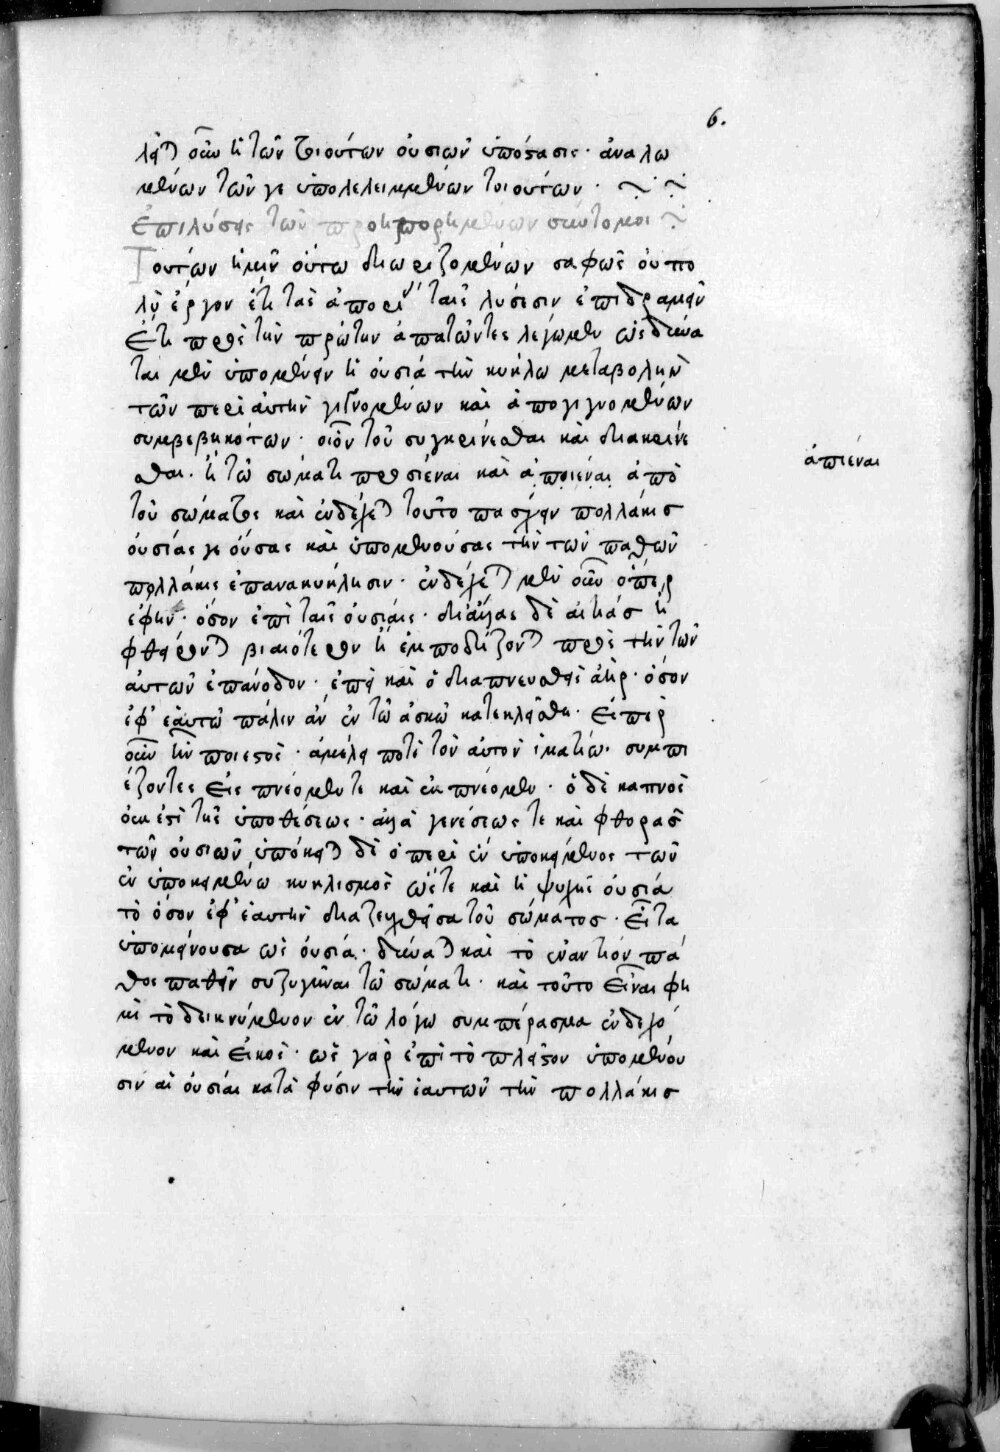 6.
λει οὖν ἡ τῶν τοιούτων οὐσιῶν ὑπόστασις · ἀναλω
μένων τῶν γε ὑπολελειμμένων τοιούτων ·
Ἐπιλύσεις τῶν προηπορημένων σύντομοι
Τούτων ἡμῖν οὕτω διωρισμένων σαφῶς οὐ πο
λὺ ἔργον ἔτι ταῖς λύσεσιν ἐπιδραμεῖν
Ἔτι πρὸς τὴν πρώτην ἀπατῶντες λέγωμεν ὡς δύνα
ται μὲν ὑπομένειν ἡ οὐσία τὴν κύκλω μεταβολὴν
τῶν περὶ αὐτὴν γιγνομένων καὶ ἀπογιγνομένων
συμβεβηκότων · οἷον τοῦ συγκρίνεσθαι καὶ διακρίνε
σθαι · ἢ τῶ σώματι προσιέναι καὶ ἀποιέναι ἀπὸ
τοῦ σώματος καὶ ἐνδέχεται τοῦτο πάσχειν πολλάκις
οὐσίας γε οὔσας καὶ ὑπομενούσας τὴν τῶν παθῶν
πολλάκις ἐπανακύκλησιν · ἐνδέχεται μὲν οὖν ὅπερ
ἔφην · ὅσον ἐπὶ ταῖς οὐσίαις · δι' ἄλλας δὲ αἰτίας ἢ
βιαιότερον ἢ ἐμποδίζονται πρὸς τὴν τῶν
αὐτῶν ἐπάνοδον · ἐπεὶ καὶ ὁ διαπνευσθεὶς ἀὴρ · ὅσον
ἐφ' ἑαυτῶ πάλιν ἂν ἐν τῶ ἀσκῶ κατεκλείσθη · εἴπερ
οὖν τὴν ἀμέλει ποτὲ τὸν αὐτὸν συμπι
έζοντες εἰσπνέομέν τε καὶ ἐκπνέομεν · ὁ δὲ καπνὸς
οὐκ ἐπὶ τῆς ὑποθέσεως · ἀλλὰ γενέσεώς τε καὶ φθορᾶς
τῶν οὐσιῶν ὑπόκειται δὲ ὁ περὶ ἓν ὑποκείμενος τῶν
ἐν ὑποκειμένω κυκλισμὸς ὥστε καὶ ἡ ψυχῆς οὐσία
τὸ ὅσον ἐφ' ἑαυτὴν διαζευχθεῖσα τοῦ σώματος · εἶτα
ὑπομείνουσα ὡς οὐσία · δύναται καὶ τὸ ἐναντίον πά
θος παθεῖν συζυγῆναι τῶ σώματι · καὶ τοῦτο εἶναι φη
μὶ τὸ δεικνύμενον ἐν τῶ λόγω συμπέρασμα ἐνδεχό
μενον καὶ εἰκὸς · ὡς γὰρ ἐπὶ τὸ πλεῖστον ὑπομένου
σιν αἱ οὐσίαι κατὰ φύσιν τὴν ἑαυτῶν τὴν πολλάκις
ἀπιέναι